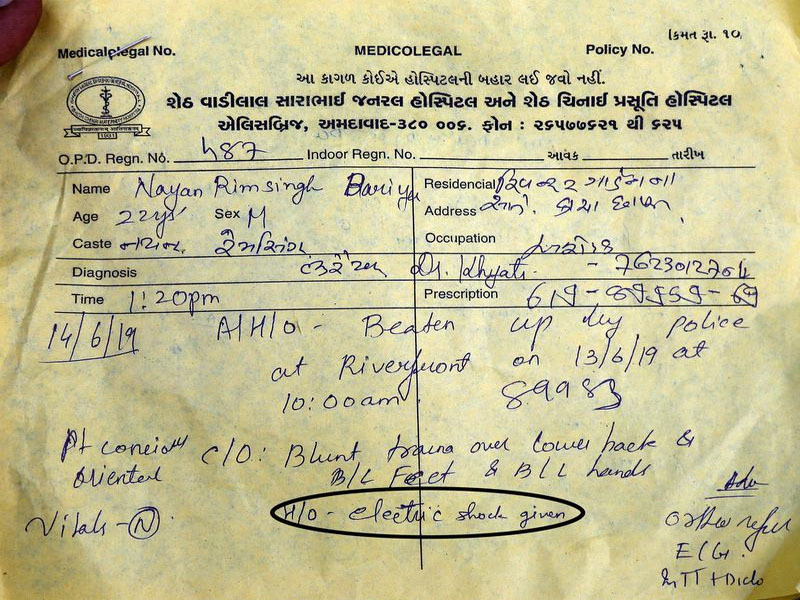 (કિંમત રૂા. ૧૦
Medicolegal No. MEDICOLEGAL Policy No.
આ કાગળ કોઈએ હોસ્પિટલની બહાર લઈ જવો નહીં.
શેઠ વાડીલાલ સારાભાઈ જનરલ હોસ્પિટલ અને શેઠ ચિનાઈ પ્રસૂતિ હોસ્પિટલ
એલિસબ્રિજ, અમદાવાદ-૩૮૦ ૦૦૬. ફોન : ૨૬૫૭૭૬૨૧ થી ૬૨૫
O.P.D. Regn. No. ૫487 Indoor Regn. No. આવક તારીખ
Name Nayan Rimsingh Bariya Residencial
Age 22 yrs Sex M Address
Caste નયન Occupation
Diagnosis Dr. Khyati - 7623012704
Time 1:20pm Prescription
14/6/19 A/H/O - Beaten up by police
at Riverfront on 13/6/19 at
10:00am
Pt concious C/O: Blunt trauma over lower back &
oriented B/L Feet & B/L hands
Vitals - N H/O - electric shock given
Adv
Ortho refer
ECG